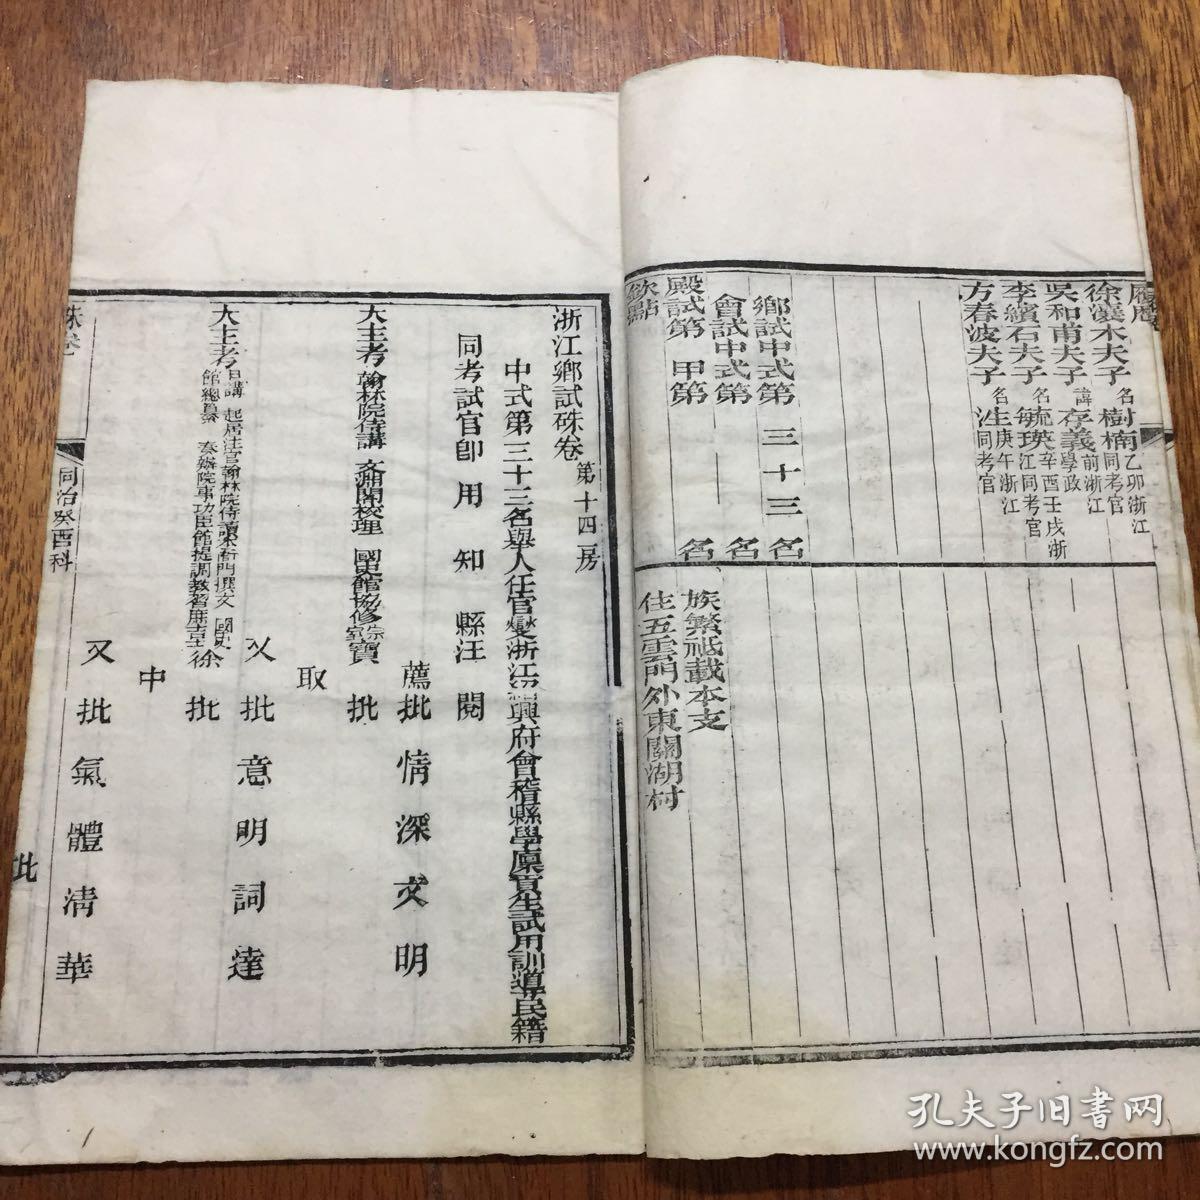 履歷
徐漢木夫子 名樹楠 乙卯浙江同考官
吳和甫夫子 諱存義 前浙江學政
李續石夫子 名毓瑛 辛酉壬戌浙江同考官
方春波夫子 名泩 庚午浙江同考官
鄉試中式第 三十三 名
會試中式第 名
殿試第 甲第 名
欽點
族繁祗載本支
住五雲門外東關湖村
浙江鄉試硃卷 第十四房
中式第三十三名舉人任官燮浙江紹興府會稽縣學廩貢生試用訓導民籍
同考試官即用知縣汪 閱
薦批 情深文明
大主考翰林院侍講 文淵閣校理 國史館協修宗室寶 批
取
又批 意明詞達
大主考日講 起居注官翰林院侍讀南書房 國史館總纂 奏辦院事功臣館提調教習庶吉士徐 批
中
又批 氣體清華
硃卷
同治癸酉科
批
孔夫子旧书网
www.kongfz.com